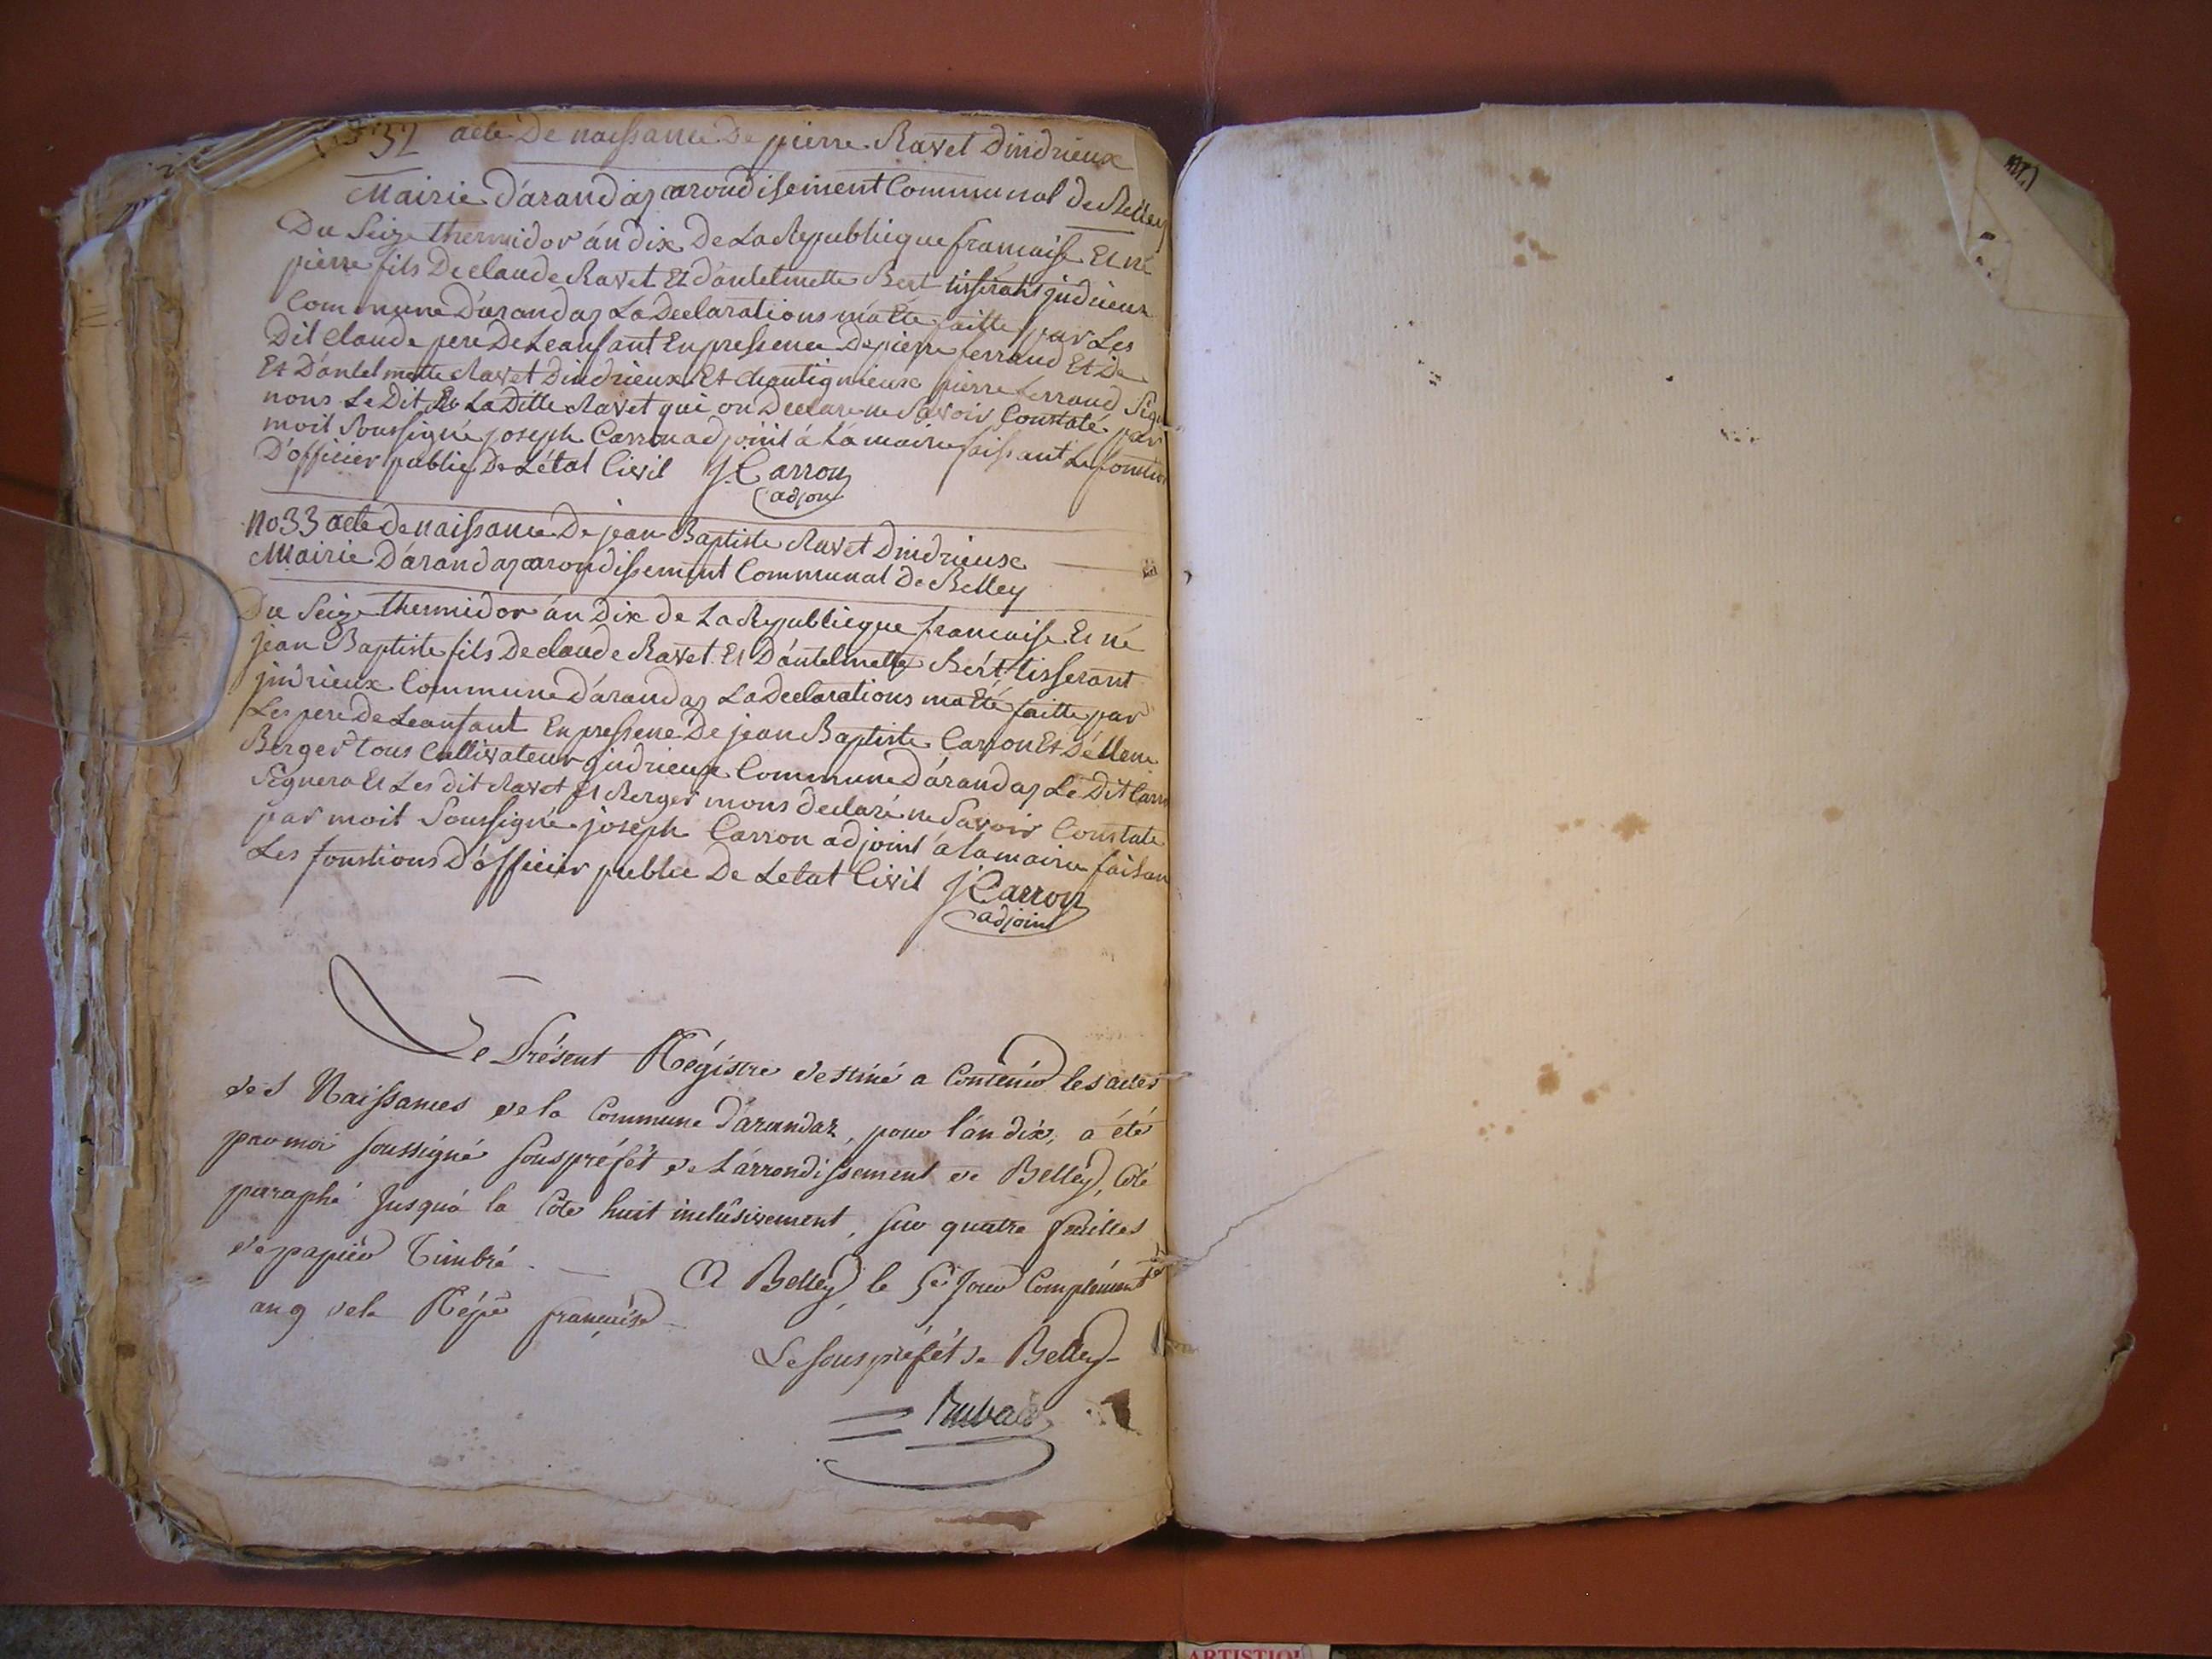 32 acte De naissance De pierre Ravet Dindrieux
Mairie d'arandas arondisement Communal de Belley
Du Seize thermidor án dix De La Republiegue francaise Et né
pierre fils De claude Ravet Et d'antelmette Bert tisserant jndrieux
Commune D'arandas La Declarations má Eté faitte par Les
Dit claude pere De Leanfant En pressence De pierre ferrand Et De
Et D'antelmette Ravet Dindrieux Et chantignieux pierre ferrand Sign
nons Le Dit Et La Ditte Ravet qui on Declare ne Savoir Constaté par
moit Soussigné joseph Carron adjoint á La mairie faissant Les fonction
D'officier public De Létat Civil J. Carron
adjoin
No 33 acte de naissance De jean Baptiste Ravet Dindrieuse
Mairie D'arandas arondissement Communal De Belley
Du Seize thermidor án Dix de La Republiegue francaise Et né
jean Baptiste fils De claude Ravet Et D'antelmette Bert tisserant
jndrieux Commune d'arandas La Declarations ma Eté faitte par
Les pere De Leanfant En pressene De jean Baptiste Carron Et Déllene
Berger tous Cullivateur jndrieux Commune D'arandas Le Dit Carro
Signera Et Les dit Ravet Et Berger mons declaré ne Savoir Constate
par moit Soussigné joseph Carron adjoint á la mairie faisan
Les fonstions D'officier public De Letat Civil J Carron
adjoint
Le Présent Régistre destiné a Contenir les actes
des Naissances de la Commune d'arandaz, pour l'an dix, a été
par moi soussigné souspréfét de l'arrondissement de Belley, Coté
paraphé jusqu'á la Cote huit inclusivement, sur quatre feuilles
de papier Timbré. — A Belley, le 5e Jour Complément re
an 9 de la Répe française
Le souspréfét de Belley